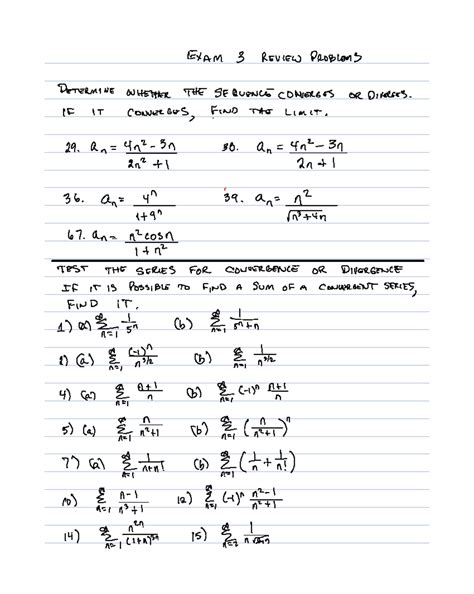 EXAM 3 REVIEW PROBLEMS
DETERMINE WHETHER THE SEQUENCE CONVERGES OR DIVERGES.
IF IT CONVERGES, FIND THE LIMIT.
29. aₙ = (4n² - 3n)/(2n² + 1) 30. aₙ = (4n² - 3n)/(2n + 1)
36. aₙ = 4ⁿ/(1+9ⁿ) 39. aₙ = n²/√(n³+4n)
67. aₙ = n² cos n/(1 + n²)
TEST THE SERIES FOR CONVERGENCE OR DIVERGENCE
IF IT IS POSSIBLE TO FIND A SUM OF A CONVERGENT SERIES,
FIND IT.
1) (a) ∑_{n=1}^∞ 1/5ⁿ (b) ∑_{n=1}^∞ 1/(5ⁿ+n)
2) (a) ∑_{n=1}^∞ (-1)ⁿ/n^{3/2} (b) ∑_{n=1}^∞ 1/n^{3/2}
4) (a) ∑_{n=1}^∞ (n+1)/n (b) ∑_{n=1}^∞ (-1)ⁿ (n+1)/n
5) (a) ∑_{n=1}^∞ n/(n²+1) (b) ∑_{n=1}^∞ (n/(n²+1))ⁿ
7) (a) ∑_{n=1}^∞ 1/(n+n!) (b) ∑_{n=1}^∞ (1/n + 1/n!)
10) ∑_{n=1}^∞ (n-1)/(n³+1) 12) ∑_{n=1}^∞ (-1)ⁿ (n²-1)/(n²+1)
14) ∑_{n=1}^∞ n^{2n}/(1+n)^{3n} 15) ∑_{n=2}^∞ 1/(n√